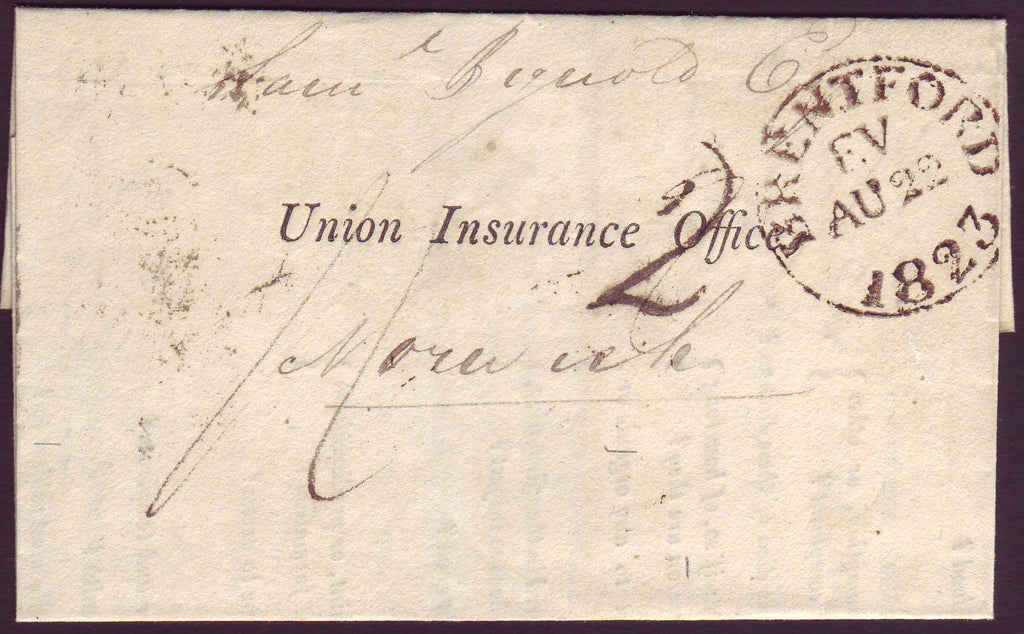 Saml Bignold E
Union Insurance Office
Norwich
2
BRENTFORD
EV
AU 22
1823